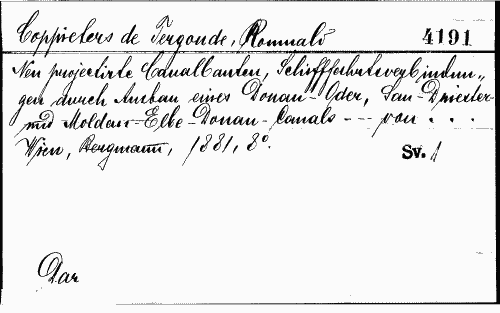 Coppieters de Tergonde, Romuald 4191
Neu projectirte Canalbauten, Schifffahrtsverbindun„
gen durch Ausbau eines Donau-Oder, San-Dniester-
und Moldau-Elbe-Donau-Canals --- von ...
Wien, Bergmann, 1881, 8°.
Sv. 1
Dar